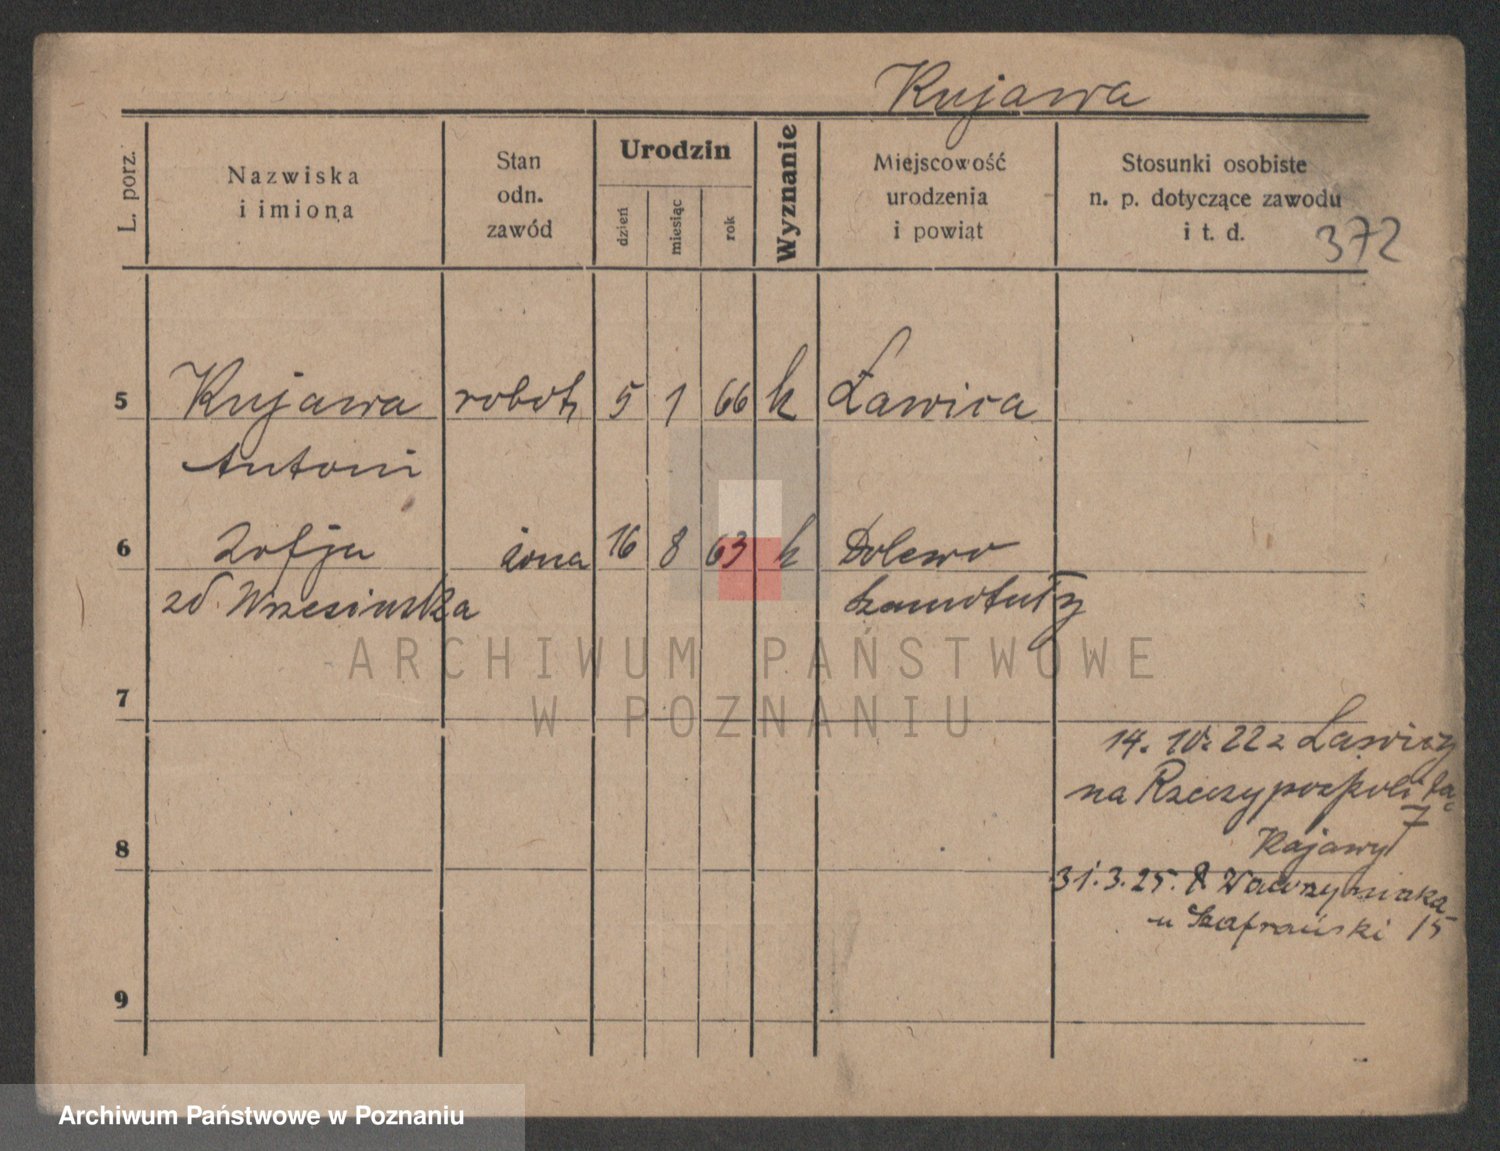 Kujawa
L. porz.
Nazwiska
i imiona
Stan
odn.
zawód
Urodzin
dzień
miesiąc
rok
Wyznanie
Miejscowość
urodzenia
i powiat
Stosunki osobiste
n. p. dotyczące zawodu
i t. d.
372
5 Kujawa robotn 5 1 66 k Ławica
Antoni
6 Zofja żona 16 8 63 k
zd. Wrzesińska Szamotuły
7
14. 10. 22 z Ławicy
na Rzeczypospolita
7
8
Kujawy
31.3.25. Wawrzyniaka
u Szafrański 15
9
ARCHIWUM PAŃSTWOWE
W POZNANIU
Archiwum Państwowe w Poznaniu